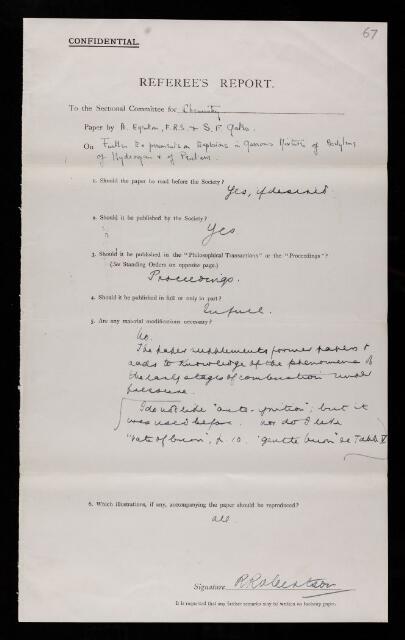 67
CONFIDENTIAL.
REFEREE'S REPORT.
To the Sectional Committee for Chemistry
Paper by A. Egerton, F.R.S. & S. F. Gates.
On Further Experiments on Explosions in Gaseous Mixtures of Acetylene,
of Hydrogen & of Pentane.
1. Should the paper be read before the Society?
Yes, if desired.
2. Should it be published by the Society?
Yes
3. Should it be published in the "Philosophical Transactions" or the "Proceedings"?
(See Standing Orders on opposite page.)
Proceedings.
4. Should it be published in full or only in part?
In full.
5. Are any material modifications necessary?
No.
The paper supplements former papers &
adds to knowledge of the phenomena of
the early stages of combustion under
pressure.
I do not like "auto-ignition", but it
was used before. nor do I like
"rate of burn", p. 10. "gentle burn" in Table V
6. Which illustrations, if any, accompanying the paper should be reproduced?
all.
Signature R Robertson
It is requested that any further remarks may be written on backway paper.